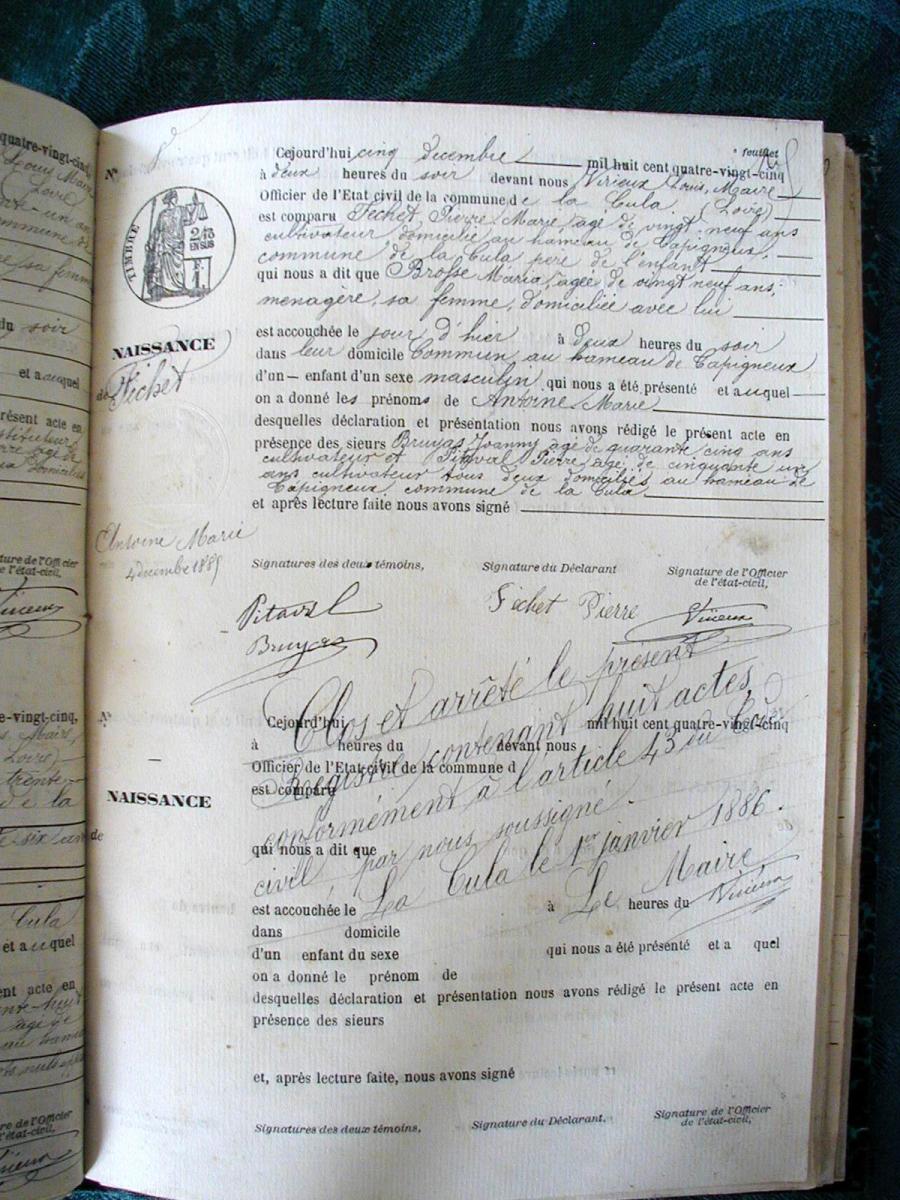 quatre-vingt-cinq,
Louis Maire
(Loire)
du soir
et a auquel
résent acte en
ture de l'Officier
e l'état-civil,
e-vingt-cinq,
Loire
trente
de la
Cula
et a uquel
ent acte en
re de l'Officier
l'état-civil,
N°
feuillet
Cejourd'hui cinq decembre mil huit cent quatre-vingt-cinq
à deux heures du soir devant nous Virieux Louis, Maire
Officier de l'Etat civil de la commune de la Cula (Loire)
est comparu Fechet, Pierre Marie, agé de vingt neuf ans
cultivateur domicilié au hameau de Capigneux,
commune de la Cula père de l'enfant
qui nous a dit que Brosse Maria, agée de vingt neuf ans,
menagère, sa femme, domiciliée avec lui
est accouchée le jour d'hier à deux heures du soir
dans leur domicile Commun au hameau de Capigneux
d'un enfant d'un sexe masculin qui nous a été présenté et auquel
on a donné les prénoms de Antoine Marie
desquelles déclaration et présentation nous avons rédigé le présent acte en
présence des sieurs Bruyas Joanny agé de quarante cinq ans
cultivateur et Pitaval Pierre agé de cinquante un
ans cultivateur tous deux domiciliés au hameau de
Capigneux commune de la Cula
et après lecture faite nous avons signé
TIMBRE
2/10
EN SUS
NAISSANCE
de Fichet
Antoine Marie
4 decembre 1885
Signatures des deux témoins,
Signature du Déclarant
Signature de l'Officier
de l'état-civil,
Pitaval
Bruyas
Fechet Pierre
Virieux
Clos et arrêté le présent
Registre contenant huit actes
conformément à l'article 43 du Code
civil par nous soussigné.
La Cula le 1er janvier 1886.
Le Maire
Virieux
N°
NAISSANCE
de
Cejourd'hui mil huit cent quatre-vingt-cinq
à heures du devant nous
Officier de l'Etat-civil de la commune d
est comparu
qui nous a dit que
est accouchée le à heures du
dans domicile
d'un enfant du sexe qui nous a été présenté et a quel
on a donné le prénom de
desquelles déclaration et présentation nous avons rédigé le présent acte en
présence des sieurs
et, après lecture faite, nous avons signé
Signatures des deux témoins,
Signature du Déclarant,
Signature de l'Officier
de l'état-civil,